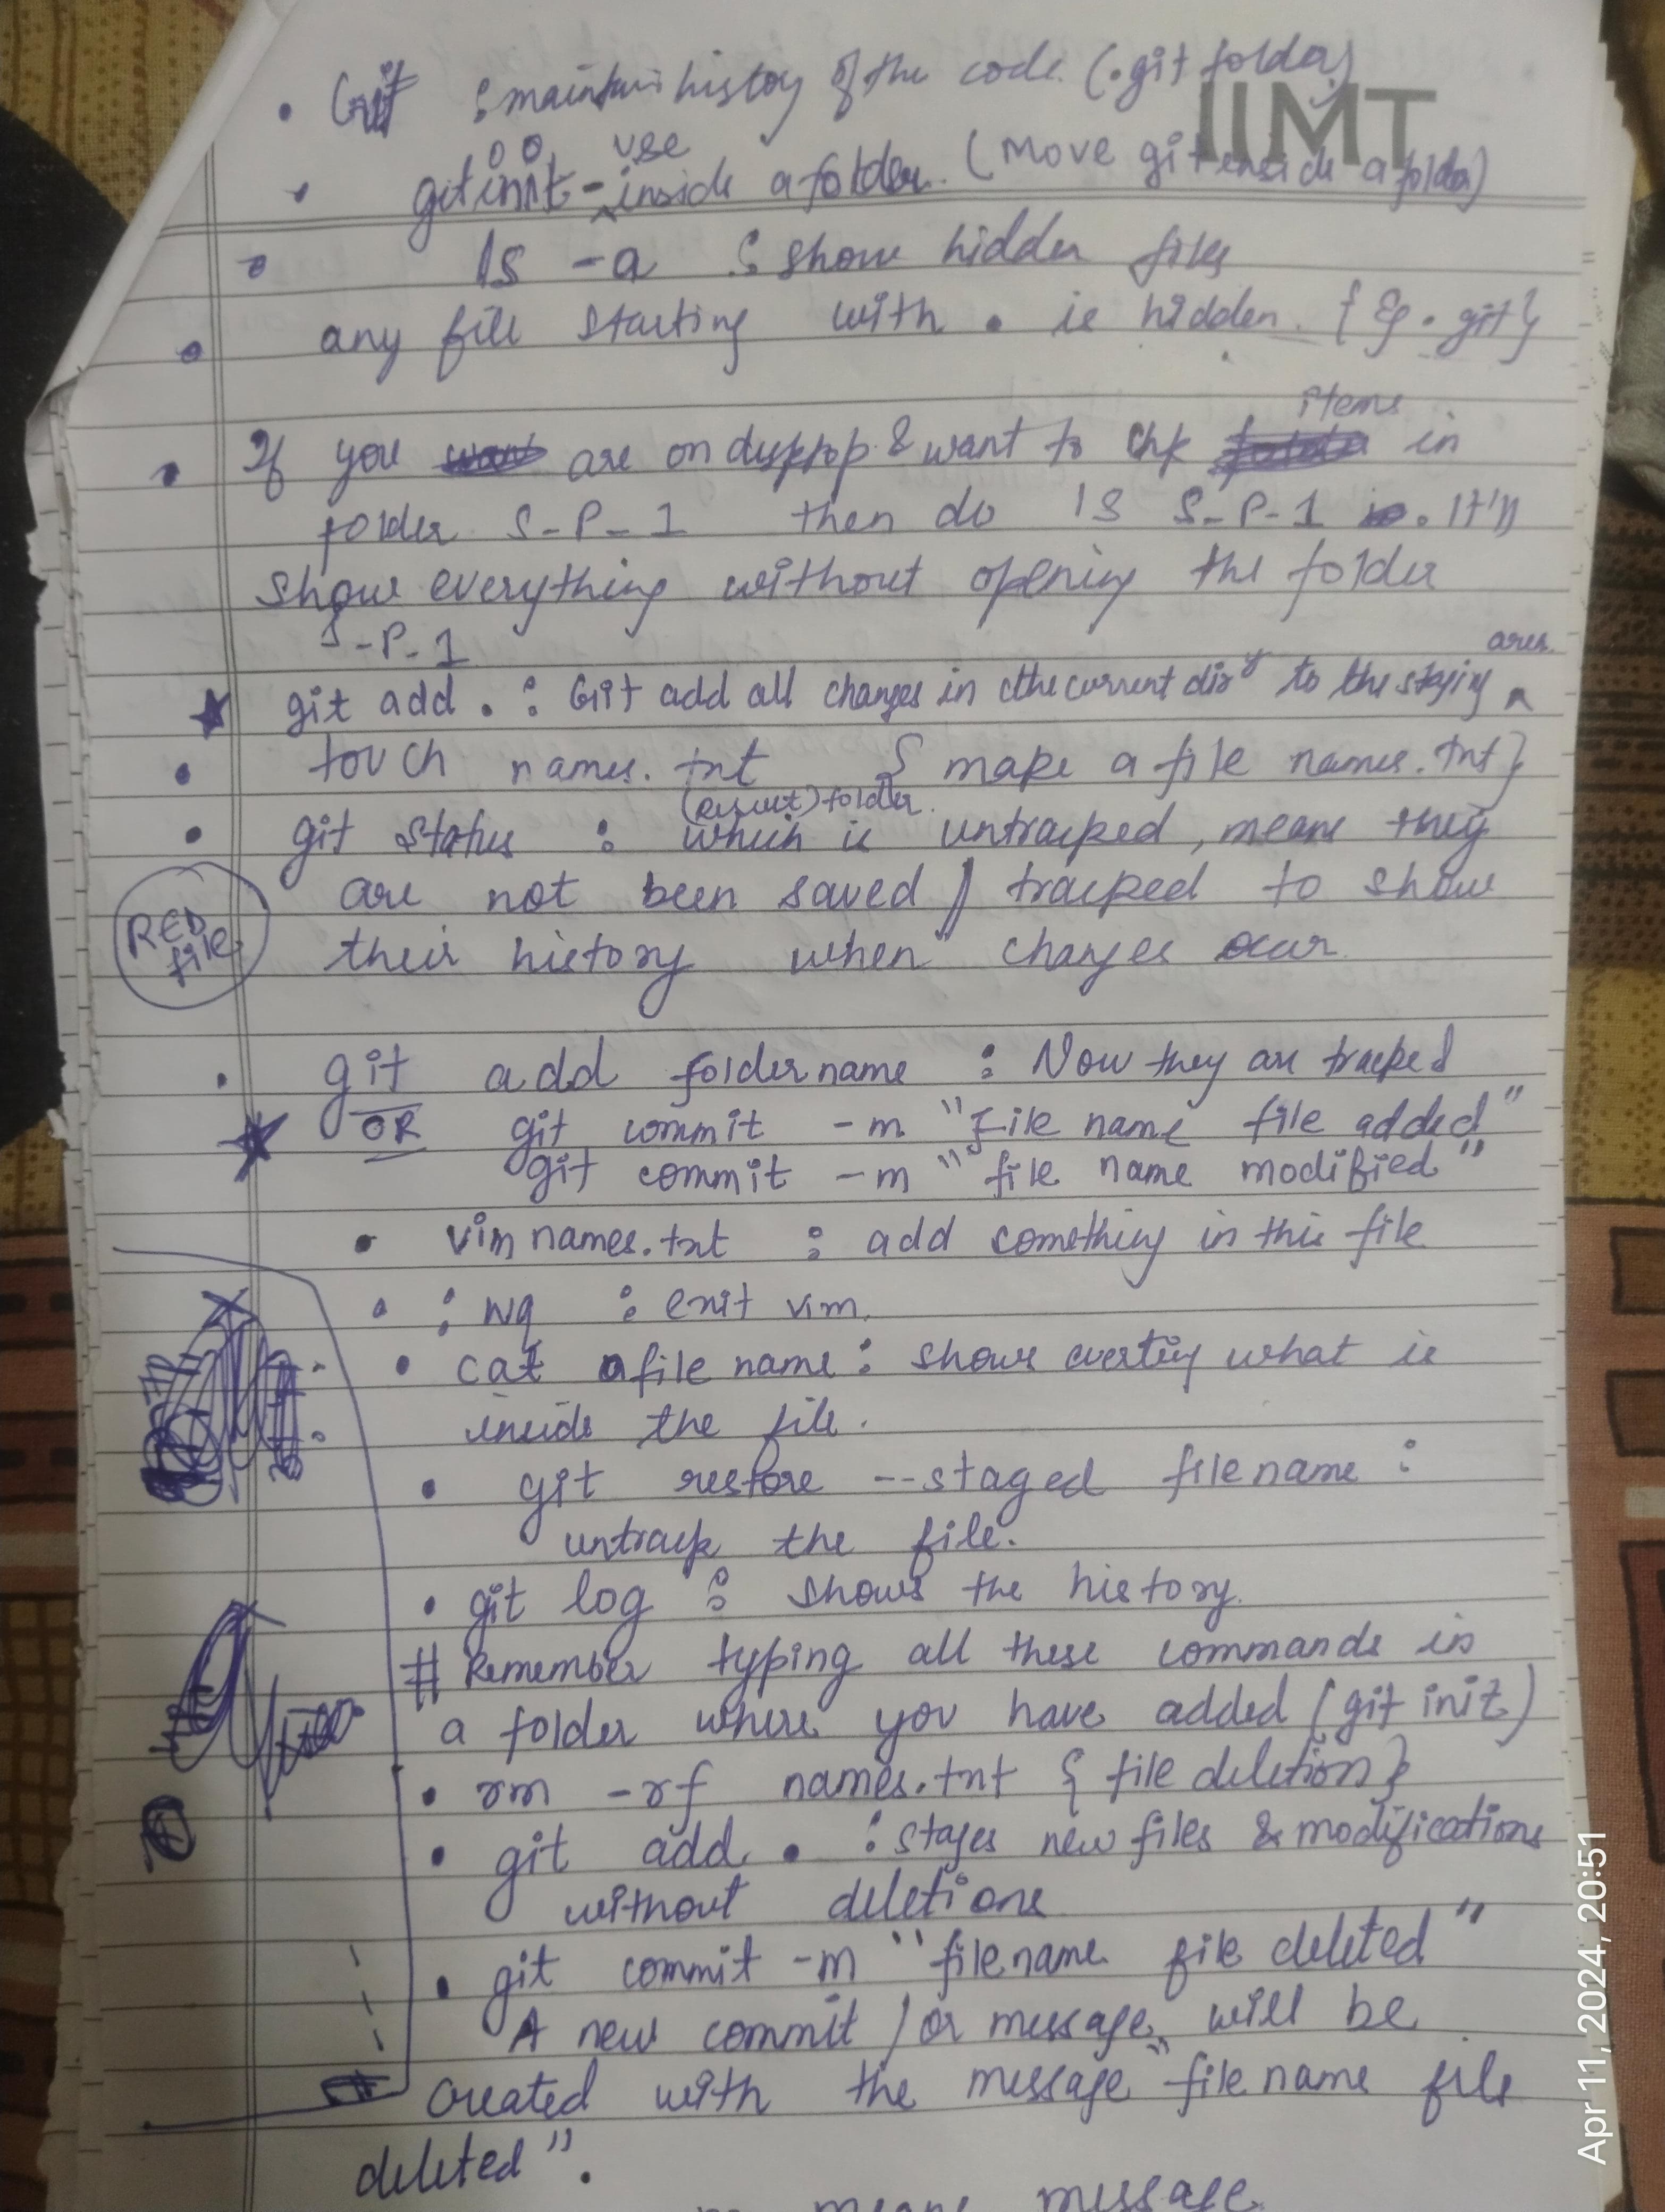 • Git : maintain history of the code. (.git folder)
IIMT
• git init - use inside a folder. (Move git inside a folder)
• ls -a : show hidden files
• any file starting with . is hidden. {Eg .git}
• If you are on desktop & want to chk items in
folder S-P-1 then do ls S-P-1 . It'll
show everything without opening the folder
S-P-1
★ git add . : Git add all changes in the current diry to the staging area.
• touch names.txt { make a file names.txt}
• git status : (Result) folder. which is untracked, means they
are not been saved / tracked to show
RED file
their history when changes occur.
• git add foldername : Now they are tracked
★ OR git commit -m "File name file added"
git commit -m "file name modified"
• vim names.txt : add something in this file
• :wq : exit vim.
• cat a file name : shows what is
inside the file.
• git restore --staged filename :
untrack the file.
• git log : shows the history.
# Remember typing all these commands in
a folder where you have added (git init)
• rm -rf names.txt { file deletion}
• git add . : stages new files & modifications
without deletions
• git commit -m "filename file deleted"
A new commit / or message will be
created with the message "filename file
deleted".
means message
Apr 11, 2024, 20:51